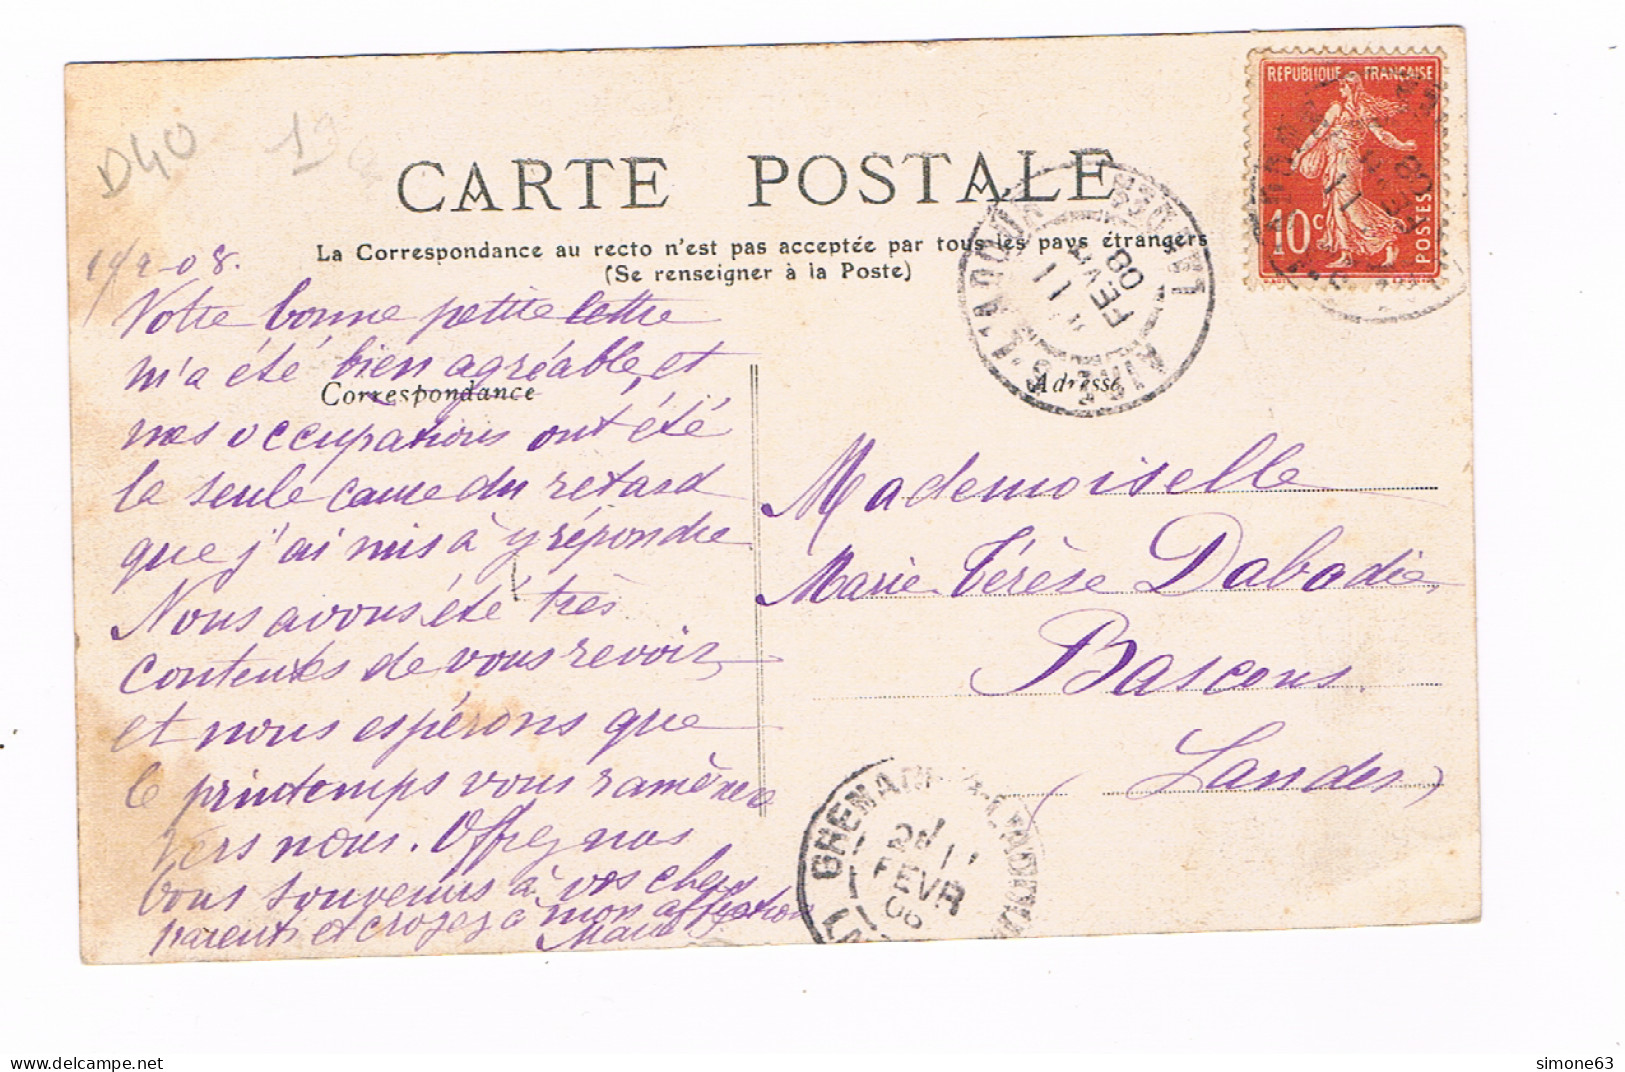 D40 19
RÉPUBLIQUE FRANÇAISE
10c
POSTES
CARTE POSTALE
La Correspondance au recto n'est pas acceptée par tous les pays étrangers
(Se renseigner à la Poste)
11 FEVR 08
-2-08.
Votre bonne petite lettre
m'a été bien agréable, et
Correspondance
Adresse
mes occupations ont été
la seule cause du retard
que j'ai mis à y répondre
Nous avons été très
contents de vous revoir,
et nous espérons que
le printemps vous ramènera
vers nous. Offrez nos
bons souvenirs à vos chers
parents et croyez à mon affection
Marie
Mademoiselle
Marie Térèse Dabadie
Bascons
(Landes)
GRENADE
11
FEVR
08
simone63